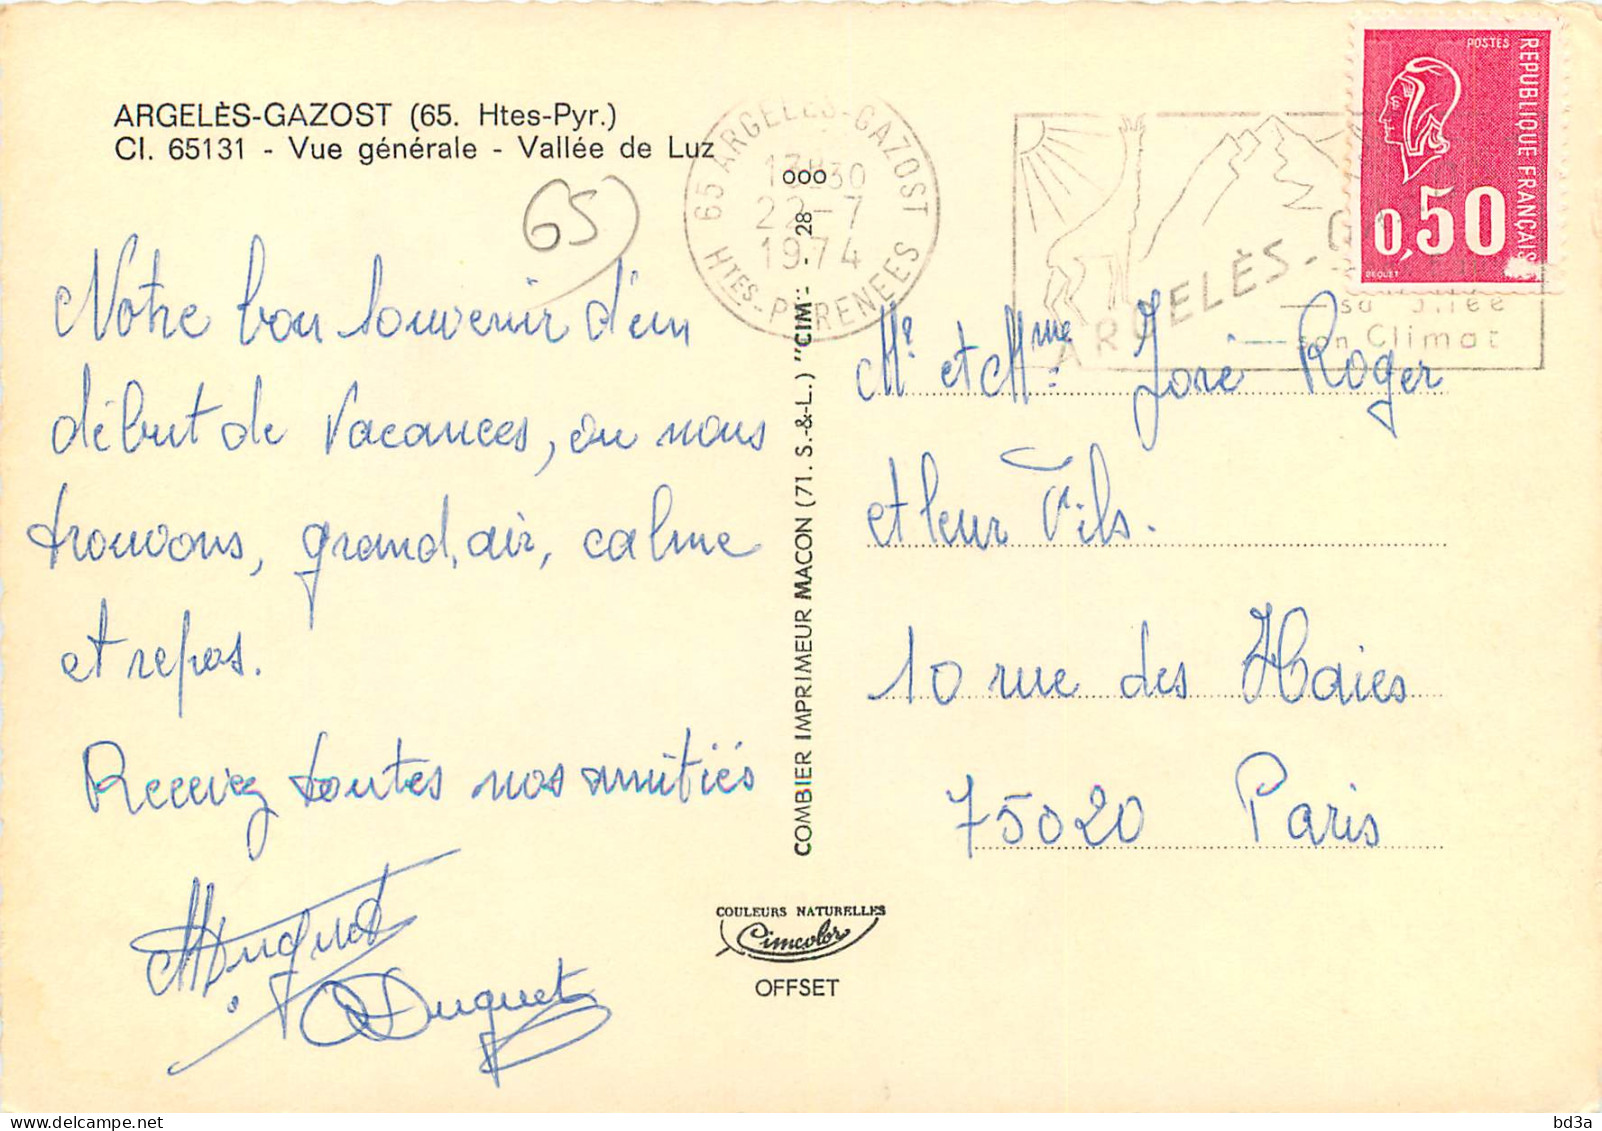 ARGELÈS-GAZOST (65. Htes-Pyr.)
Cl. 65131 - Vue générale - Vallée de Luz
65
Notre bon souvenir d'un
début de Vacances, ou nous
trouvons, grand, air, calme
et repos.
Recevez toutes nos amitiés
Duquet
Duquet
65 ARGELÈS-GAZOST
13H30
22-7
1974
HTES-PYRENEES
ARGELÈS-G
sa
son Climat
POSTES
REPUBLIQUE FRANÇAISE
0,50
BEQUET
COMBIER IMPRIMEUR MACON (71. S.-&-L.) "CIM"- - 28 000
COULEURS NATURELLES
Cimcolor
OFFSET
Mr et Mme José Roger
et leur Fils.
10 rue des Haies
75020 Paris
bd3a